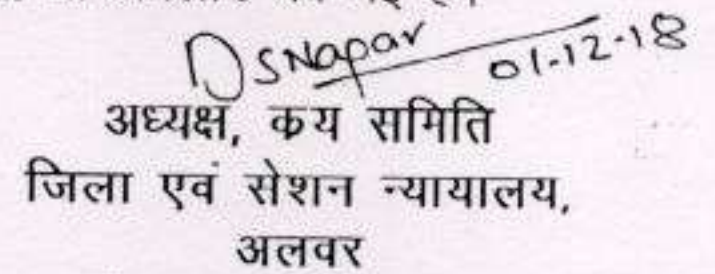 DSNagar 01-12-18
अध्यक्ष, कय समिति
जिला एवं सेशन न्यायालय,
अलवर